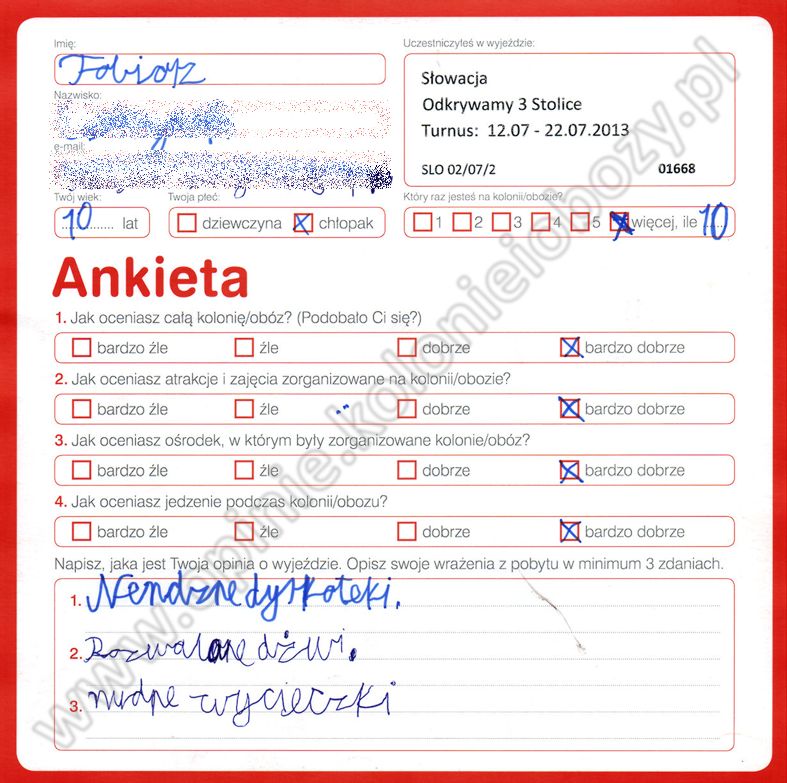 Imię:
Uczestniczyłeś w wyjeździe:
Tobiasz
Słowacja
Odkrywamy 3 Stolice
Turnus: 12.07 - 22.07.2013
SLO 02/07/2 01668
Nazwisko:
e-mail:
Twój wiek: Twoja płeć: Który raz jesteś na kolonii/obozie?
10 lat dziewczyna chłopak 1 2 3 4 5 więcej, ile 10
Ankieta
1. Jak oceniasz całą kolonię/obóz? (Podobało Ci się?)
bardzo źle źle dobrze bardzo dobrze
2. Jak oceniasz atrakcje i zajęcia zorganizowane na kolonii/obozie?
bardzo źle źle dobrze bardzo dobrze
3. Jak oceniasz ośrodek, w którym były zorganizowane kolonie/obóz?
bardzo źle źle dobrze bardzo dobrze
4. Jak oceniasz jedzenie podczas kolonii/obozu?
bardzo źle źle dobrze bardzo dobrze
Napisz, jaka jest Twoja opinia o wyjeździe. Opisz swoje wrażenia z pobytu w minimum 3 zdaniach.
1. Nendzne dyskoteki.
2. Rozwalone dżwi.
3. nudne wycieczki
www.opinie.kolonieiobozy.pl